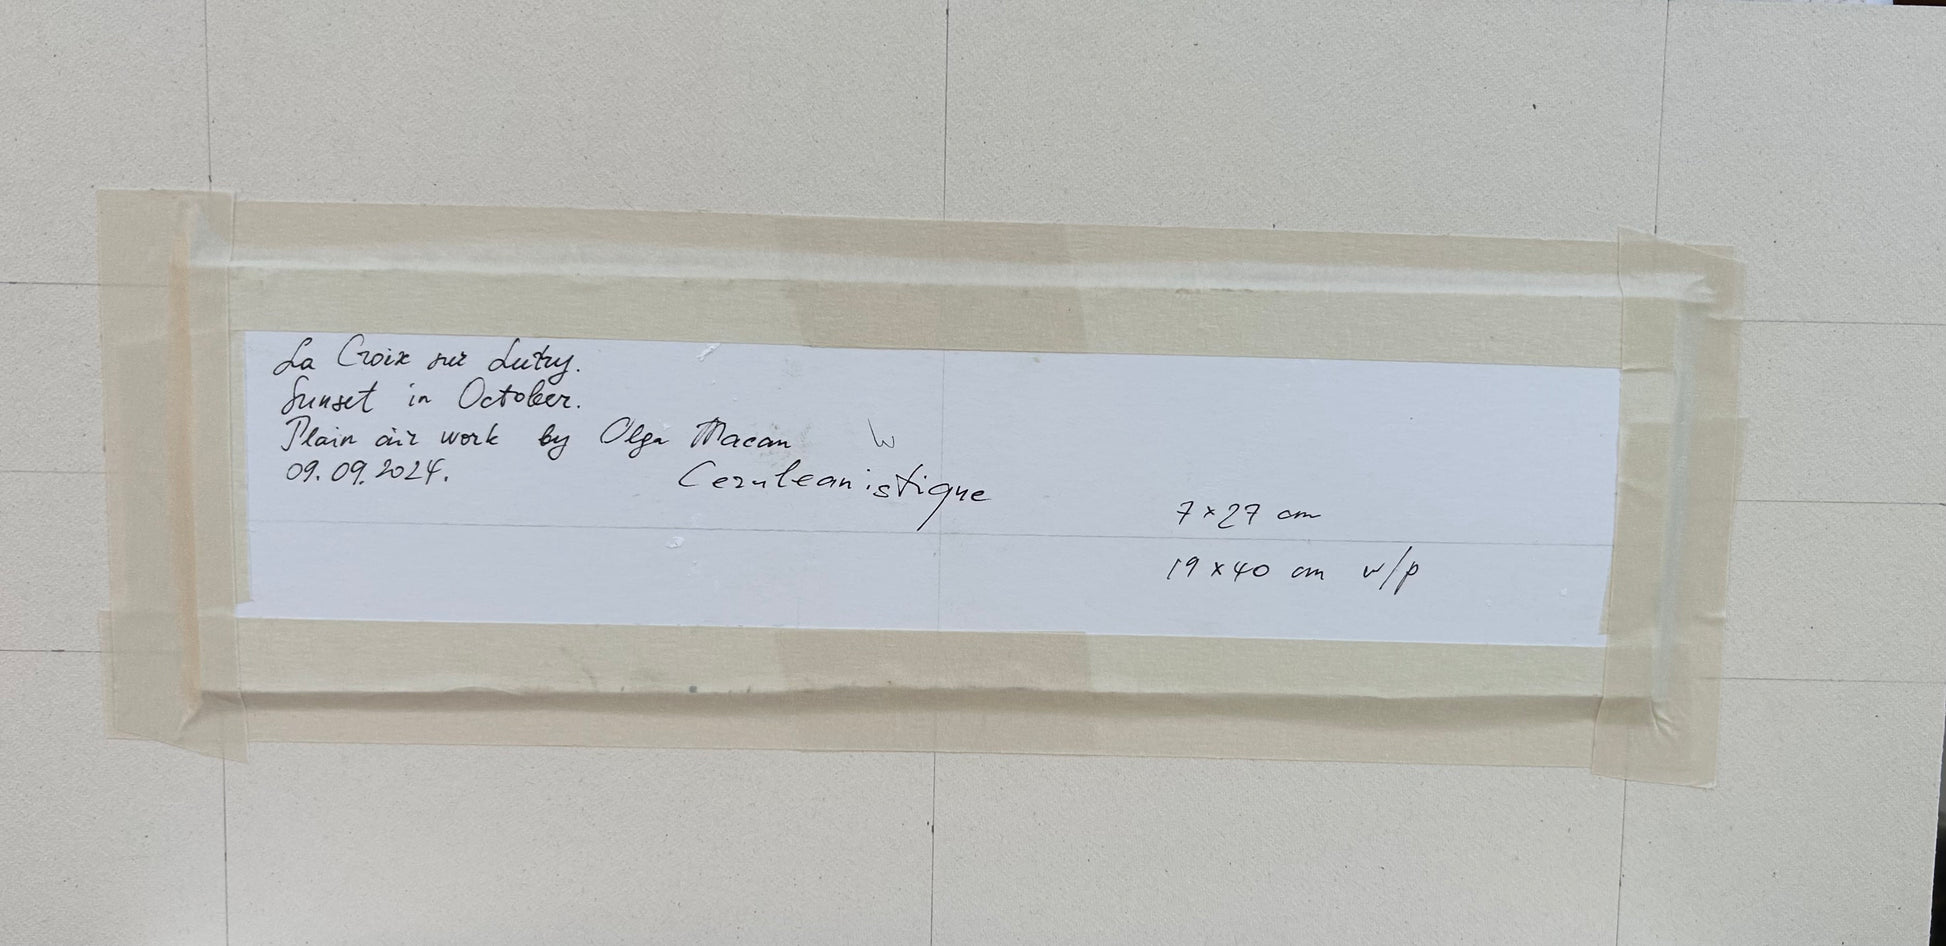 La Croix sur Lutry.
Sunset in October.
Plain air work by Olga Macan
09.09.2024.
Ceruleanistique
7×27 cm
19×40 cm w/p